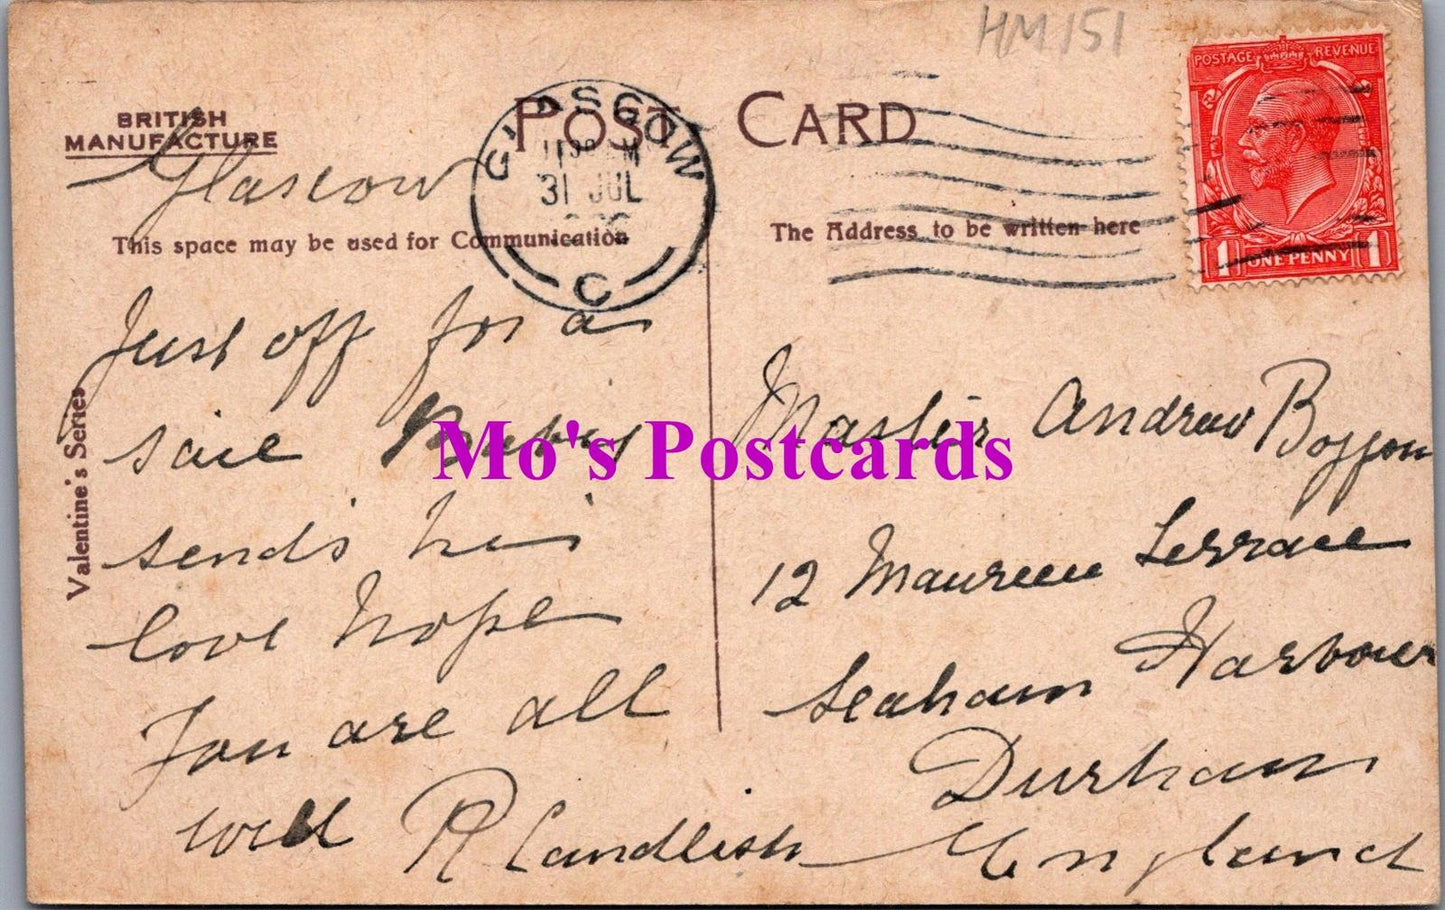 HM 151
BRITISH
MANUFACTURE
POST CARD
GLASGOW
31 JUL
C
POSTAGE REVENUE
1 ONE PENNY 1
Glascow
This space may be used for Communication
The Address to be written here
Just off for a
sail
send's his
love hope
You are all
well R Candlish
Valentine's Series
Mo's Postcards
Master Andrew
12 Maureen Terrace
Seaham Harbour
Durham
England